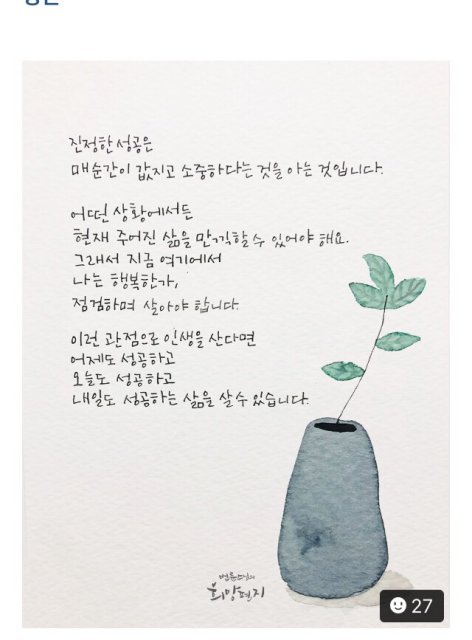 진정한 성공은
매순간이 값지고 소중하다는 것을 아는 것입니다.
어떤 상황에서든
현재 주어진 삶을 만끽할 수 있어야 해요.
그래서 지금 여기에서
나는 행복한가,
점검하며 살아야 합니다.
이런 관점으로 인생을 산다면
어제도 성공하고
오늘도 성공하고
내일도 성공하는 삶을 살 수 있습니다.
법륜스님의
희망편지
27